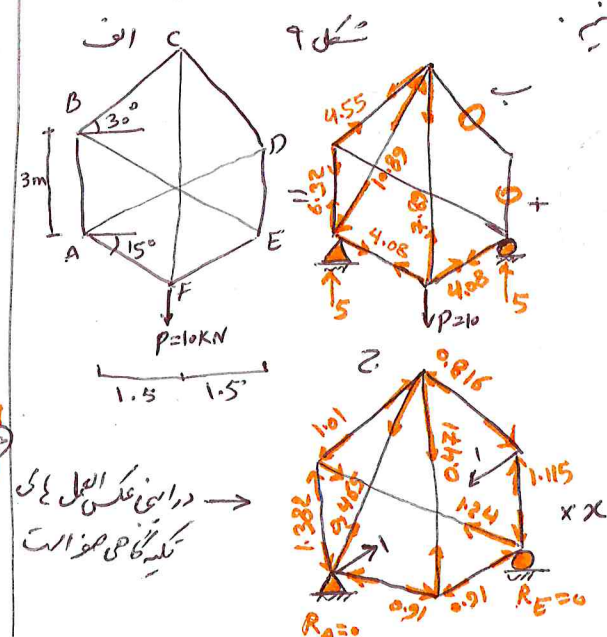 شکل ۹
الف
C
B
30°
D
3m
A
15°
E
F
P=10KN
1.5 1.5
ب
4.55
0
10.89
6.32
=
0
+
4.08
4.08
5
5
P=10
ج
0.816
1.01
0.471
1
1.115
1.382
1.24
x x
1
0.91 0.91
R_A=0
R_E=0
در این عکس العمل های →
تکیه گاهی صفر است